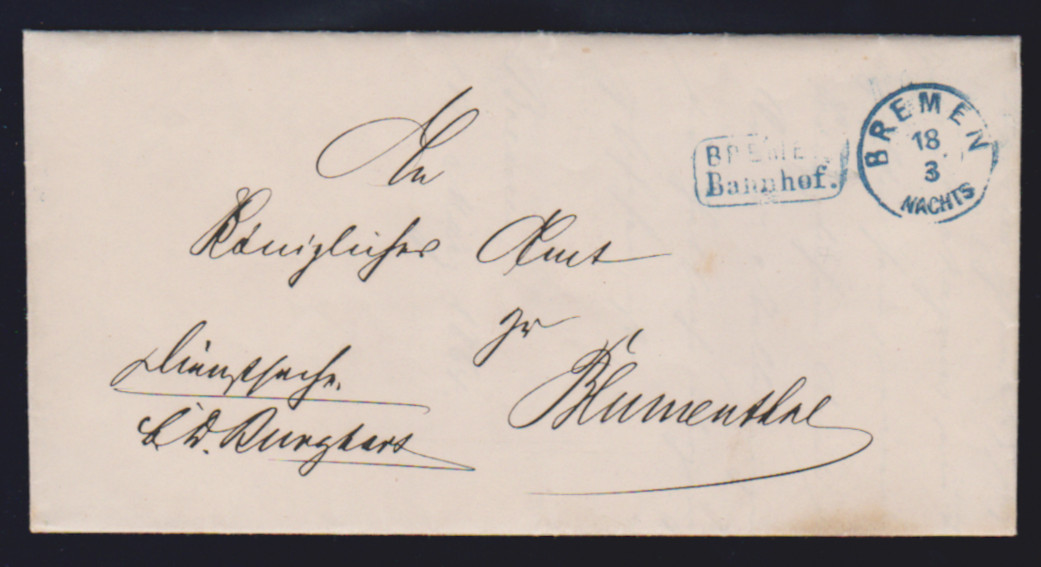 BREMEN
18
3
NACHTS
BREMEN
Bahnhof.
An
Königliches Amt
zu
Blumenthal
Dienstsache.